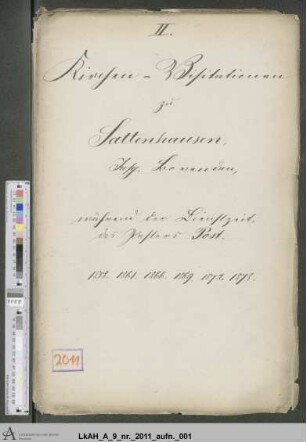 II.
Kirchen-Visitationen
zu
Sattenhausen,
Insp. Bovenden,
während der Dienstzeit
des Pastors Post.
1861. 1866. 1869. 1872. 1878.
2011
LkAH_A_9_nr._2011_aufn._001